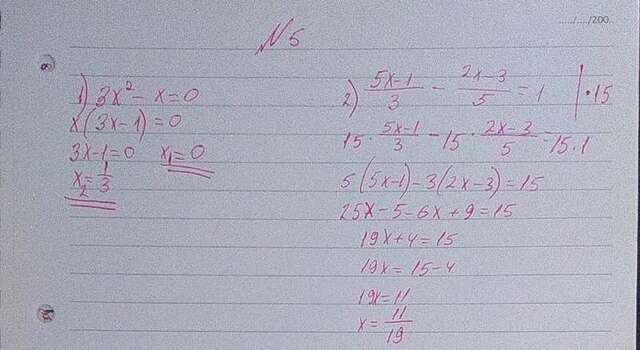 ...../..../200..
N 5
1) 3x² - x = 0
x(3x-1) = 0
3x-1=0 x₁=0
x₂ = 1/3
2) (5x-1)/3 - (2x-3)/5 = 1 | • 15
15 • (5x-1)/3 - 15 • (2x-3)/5 = 15 • 1
5(5x-1) - 3(2x-3) = 15
25x - 5 - 6x + 9 = 15
19x + 4 = 15
19x = 15 - 4
19x = 11
x = 11/19